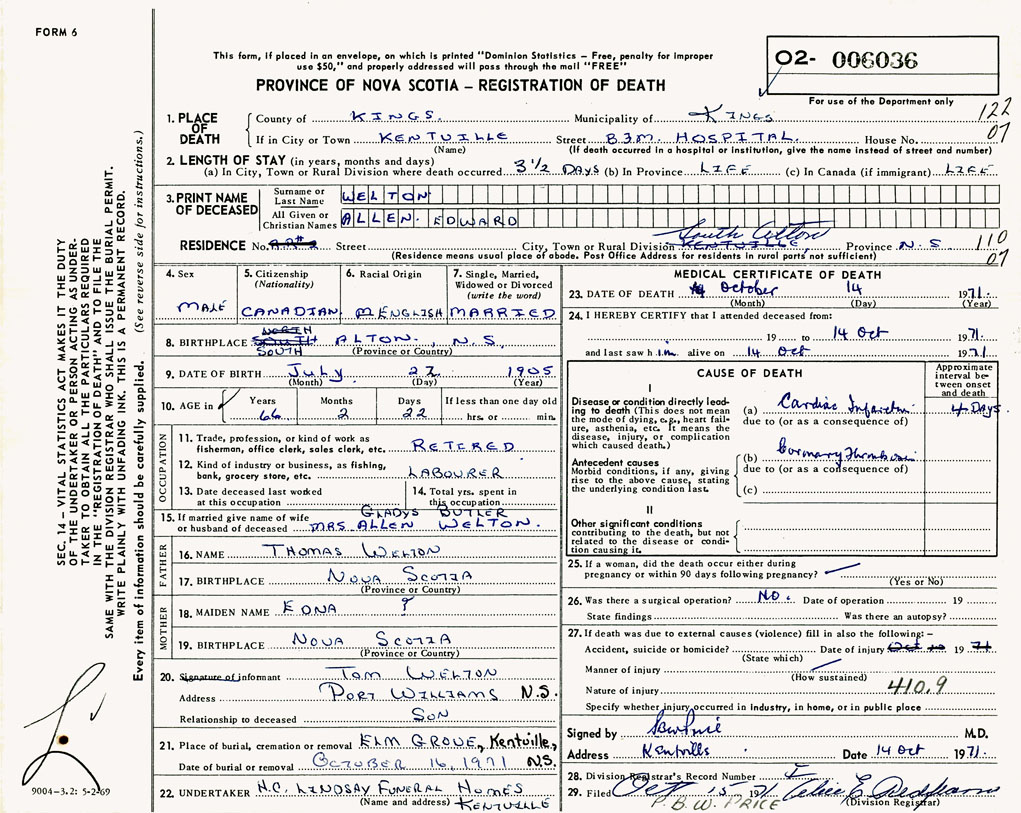 FORM 6
This form, if placed in an envelope, on which is printed "Dominion Statistics – Free, penalty for improper
use $50," and properly addressed will pass through the mail "FREE"
PROVINCE OF NOVA SCOTIA – REGISTRATION OF DEATH
02- 006036
For use of the Department only
122
07
1. PLACE OF DEATH County of KINGS. Municipality of KINGS
If in City or Town KENTVILLE Street B.F.M. HOSPITAL. House No.
(Name) (If death occurred in a hospital or institution, give the name instead of street and number)
2. LENGTH OF STAY (in years, months and days)
(a) In City, Town or Rural Division where death occurred 3 1/2 DAYS (b) In Province LIFE (c) In Canada (if immigrant) LIFE
3. PRINT NAME OF DECEASED
Surname or Last Name WELTON
All Given or Christian Names ALLEN. EDWARD
South Alton
RESIDENCE No. Street City, Town or Rural Division KENTVILLE Province N.S
110
07
(Residence means usual place of abode. Post Office Address for residents in rural parts not sufficient)
4. Sex MALE
5. Citizenship (Nationality) CANADIAN
6. Racial Origin ENGLISH
7. Single, Married, Widowed or Divorced (write the word) MARRIED
NORTH
8. BIRTHPLACE SOUTH ALTON., N.S.
SOUTH (Province or Country)
9. DATE OF BIRTH July 22 1905
(Month) (Day) (Year)
10. AGE in Years 66 Months 2 Days 22 If less than one day old hrs. or min.
OCCUPATION
11. Trade, profession, or kind of work as fisherman, office clerk, sales clerk, etc. RETERED
12. Kind of industry or business, as fishing, bank, grocery store, etc. LABOURER
13. Date deceased last worked at this occupation
14. Total yrs. spent in this occupation
GLADYS BUTLER
15. If married give name of wife or husband of deceased MRS. ALLEN WELTON.
FATHER
16. NAME THOMAS WELTON
17. BIRTHPLACE NOVA SCOTIA
(Province or Country)
MOTHER
18. MAIDEN NAME EDNA ?
19. BIRTHPLACE NOVA SCOTIA
(Province or Country)
20. Signature of informant TOM WELTON
Address PORT WILLIAMS N.S.
Relationship to deceased SON
21. Place of burial, cremation or removal ELM GROVE, Kentville,
Date of burial or removal OCTOBER 16, 1971 N.S.
22. UNDERTAKER H.C. LINDSAY FUNERAL HOMES
(Name and address) KENTVILLE
MEDICAL CERTIFICATE OF DEATH
23. DATE OF DEATH October 14 1971.
(Month) (Day) (Year)
24. I HEREBY CERTIFY that I attended deceased from:
19 to 14 Oct 1971.
and last saw him alive on 14 Oct 1971
CAUSE OF DEATH
Approximate interval between onset and death
I
Disease or condition directly leading to death (This does not mean the mode of dying, e.g., heart failure, asthenia, etc. It means the disease, injury, or complication which caused death.)
(a) Cardiac Infarction 4 Days
due to (or as a consequence of)
Antecedent causes
Morbid conditions, if any, giving rise to the above cause, stating the underlying condition last.
(b) Coronary Thrombosis
due to (or as a consequence of)
(c)
II
Other significant conditions
contributing to the death, but not related to the disease or condition causing it.
25. If a woman, did the death occur either during pregnancy or within 90 days following pregnancy?
(Yes or No)
26. Was there a surgical operation? NO. Date of operation 19
State findings Was there an autopsy?
27. If death was due to external causes (violence) fill in also the following:–
Accident, suicide or homicide? Date of injury Oct 10 19 71
(State which)
Manner of injury
(How sustained)
Nature of injury 410.9
Specify whether injury occurred in industry, in home, or in public place
Signed by M.D.
Address Kentville Date 14 Oct 1971.
28. Division Registrar's Record Number
29. Filed Oct 15 1971
(Division Registrar)
P.B.W. PRICE
SEC. 14 – VITAL STATISTICS ACT MAKES IT THE DUTY
OF THE UNDERTAKER OR PERSON ACTING AS UNDER-
TAKER TO OBTAIN ALL THE PARTICULARS REQUIRED
IN THE "REGISTRATION OF DEATH" AND TO FILE THE
SAME WITH THE DIVISION REGISTRAR WHO SHALL ISSUE THE BURIAL PERMIT.
WRITE PLAINLY WITH UNFADING INK. THIS IS A PERMANENT RECORD.
Every item of information should be carefully supplied. (See reverse side for instructions.)
9004-3.2: 5-2-69